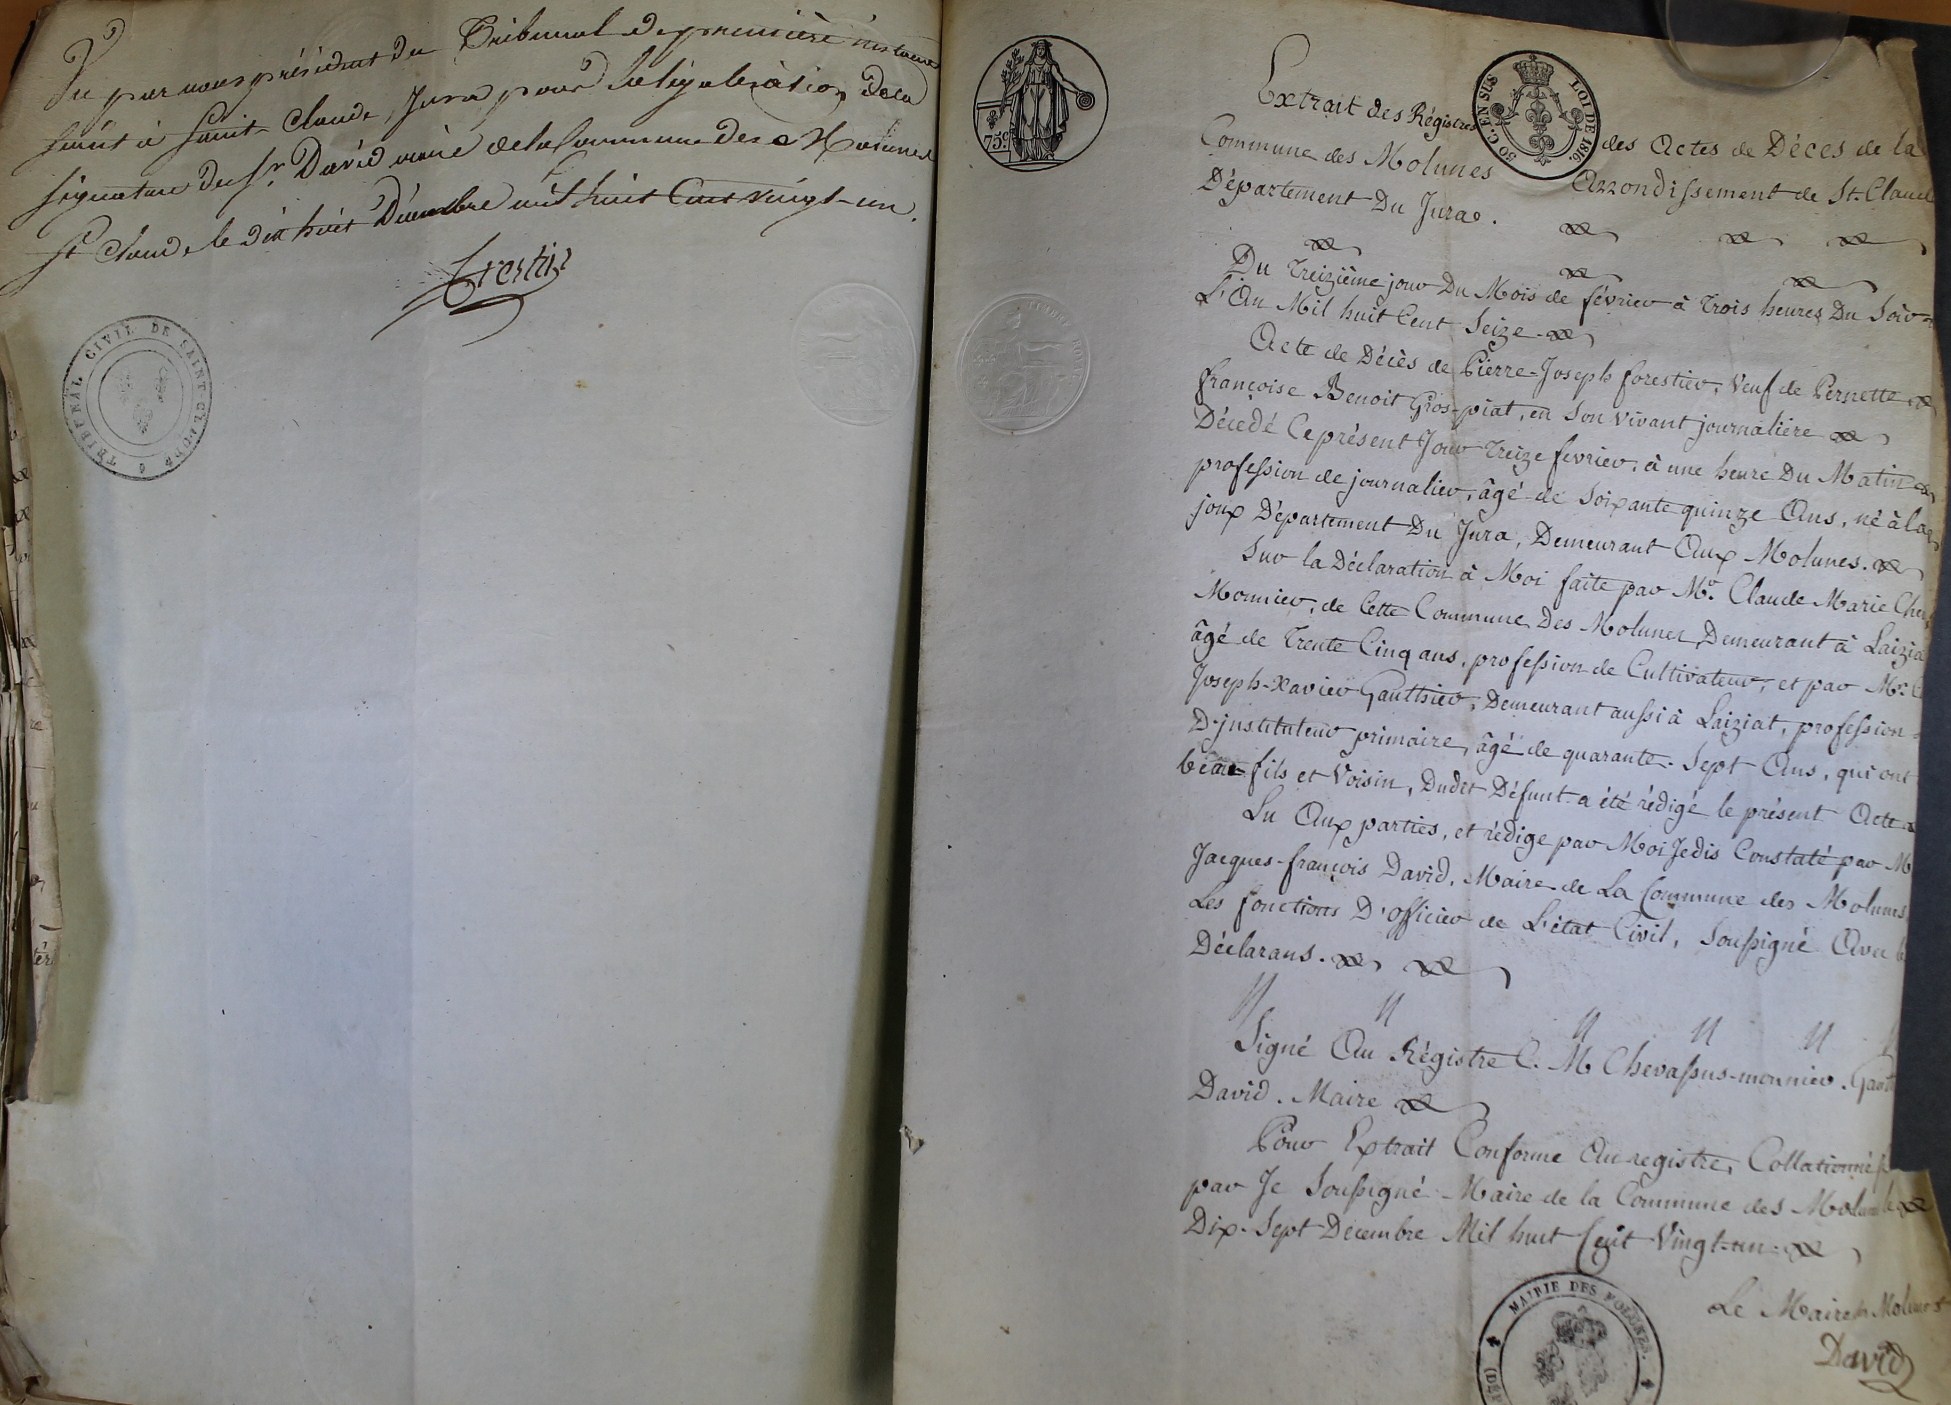 Vu par nous président du Tribunal de première instance
séant à Saint Claude, Jura pour la légalisation de la
signature du Sr. David maire de la Commune des Molunes
St Claude le dix huit Décembre mil huit Cent vingt-un.
TRIBUNAL CIVIL DE SAINT-CLAUDE
75 c.
50 C. EN SUS LOI DE 1816.
Extrait des Régistres des Actes de Décès de la
Commune des Molunes Arrondissement de St. Claude
Département Du Jura.
Du Treizième jour Du Mois de février à Trois heures Du Soir
L'An Mil huit Cent Seize
Acte de Décès de Pierre-Joseph forestier, Veuf de Pernette
françoise Benoit Gros-piat, en Son vivant journalière
Décédé Ce présent Jour Treize fevrier, à une heure Du Matin
profession de journalier, âgé de Soixante quinze Ans, né à la
joux Département Du Jura, Demeurant Aux Molunes.
Sur la Déclaration à Moi faite par Mr. Claude Marie Chev
Monnier, de Cette Commune Des Molunes, Demeurant à Laizia
âgé de Trente Cinq ans, profession de Cultivateur, et par Mr.
Joseph-Xavier Gauthier, Demeurant aussi à Laiziat, profession
D'instituteur primaire, âgé de quarante-Sept Ans, qui ont
beau-fils et Voisin, Dudit Défunt a été rédigé le présent Acte
Lu Aux parties, et rédige par Moi Jedis Constaté par M
Jacques-françois David, Maire de La Commune des Molunes,
Les fonctions D'officier de L'état Civil, Soussigné Avec
Déclarans.
Signé Au Régistre C. M Chevassus-monnier. Gaut
David. Maire
Pour Extrait Conforme Au registre, Collationné
par Je Soussigné Maire de la Commune des Molunes
Dix-Sept Décembre Mil huit Cent Vingt-un
MAIRIE DES MOLUNES.
Le Maire des Molunes
David